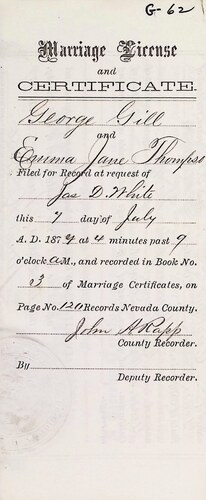 G-62
Marriage License
and
CERTIFICATE.
George Gill
and
Emma Jane Thompso
Filed for Record at request of
Jas D. White
this 7 day of July
A. D. 1874 at 4 minutes past 9
o'clock A M., and recorded in Book No.
3 of Marriage Certificates, on
Page No. 120 Records Nevada County.
John A Rapp
County Recorder.
By
Deputy Recorder.